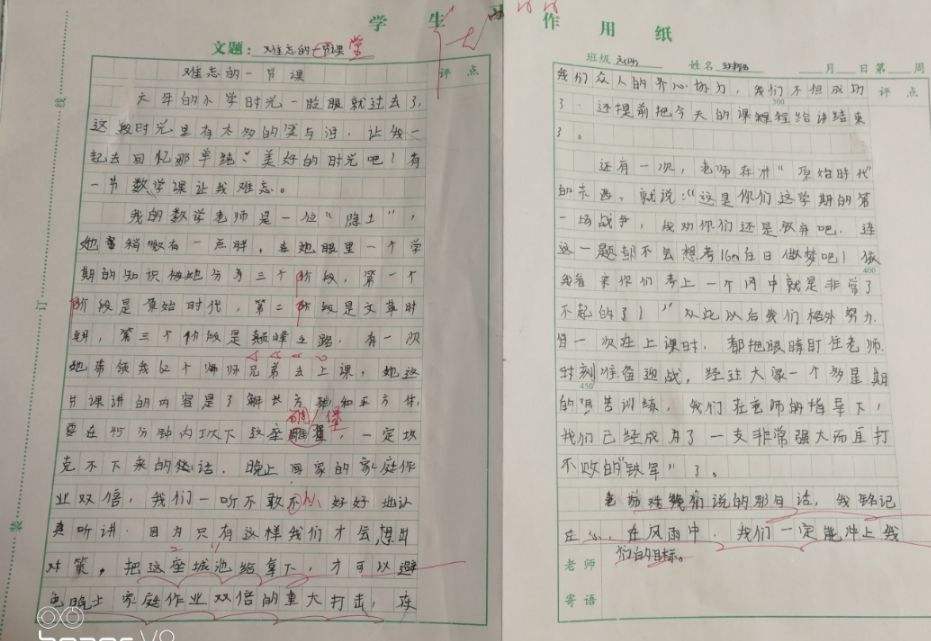 学 生 作 用 纸
文题：难忘的一节课 堂
难忘的一节课
评 点
六年的小学时光一眨眼就过去了，
这段时光里有太多的笑与泪，让我一
起去回忆那单纯、美好的时光吧！有
一节数学课让我难忘。
我的数学老师是一位“隐士”，
她稍微有一点胖，在她眼里一个学
期的知识被她分为三个阶段，第一个
阶段是原始时代，第二阶段是文革时
期，第三个阶段是巅峰之路。有一次
她带领我62个师兄弟去上课，她这
节课讲的内容是了解长方体和正方体，
要在45分钟内攻下这座，一定攻
碉 堡
克不下来的话，晚上回家的家庭作
业双倍，我们一听不敢不好好地认
真听讲，因为只有这样我们才会想出
对策，把这座城池给拿下，才可以避
免晚上家庭作业双倍的重大打击，在
班级 姓名 月 日 第 周
我们众人的齐心协力，我们不但成功 评 点
了，还提前把今天的课程给讲结束
300
了。
还有一次，老师在讲“原始时代”
的东西，就说：“这是你们这学期的第
一场战争，我劝你们还是放弃吧，连
这一题都不会想考16m白日做梦吧！依
400
我看来你们考上一个初中就是非常了
不起的了！”从此以后我们格外努力，
每一次在上课时，都把眼睛盯住老师，
时刻准备迎战，经过大概一个多星期
450
的训练，我们在老师的指导下，
我们已经成为了一支非常强大而且打
不败的“铁军”了。
老师对我们说的那句话，我铭记
在心，在风雨中，我们一定能冲上我
们的目标。
老师
寄语
装 订 线
honor V9